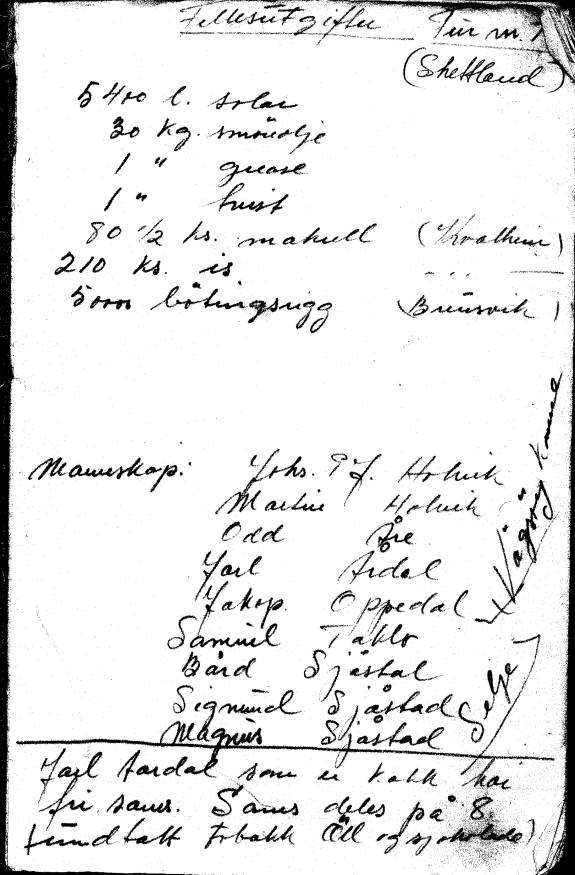 Fellesutgifter Tur nr. 1
(Shettland)
5400 l. solar
30 kg. smörolje
1 " grease
1 " tvist
80 1/2 ks. makrell (Kvalheim)
210 ks. is
5000 bötingsrigg (Brünsvik)
Mannskap: Johs. P J. Holvik
Martin Holvik
Odd Åre
Jarl Årdal
Jakop. Oppedal
Samuel Taklo
Bård Sjåstad
Sigmund Sjåstad
Magnus Sjåstad
Vågsøy
Selje
Jarl Aardal som er kokk har
fri sams. Sams deles på 8.
(undtatt tobakk Öll og sjokolade)